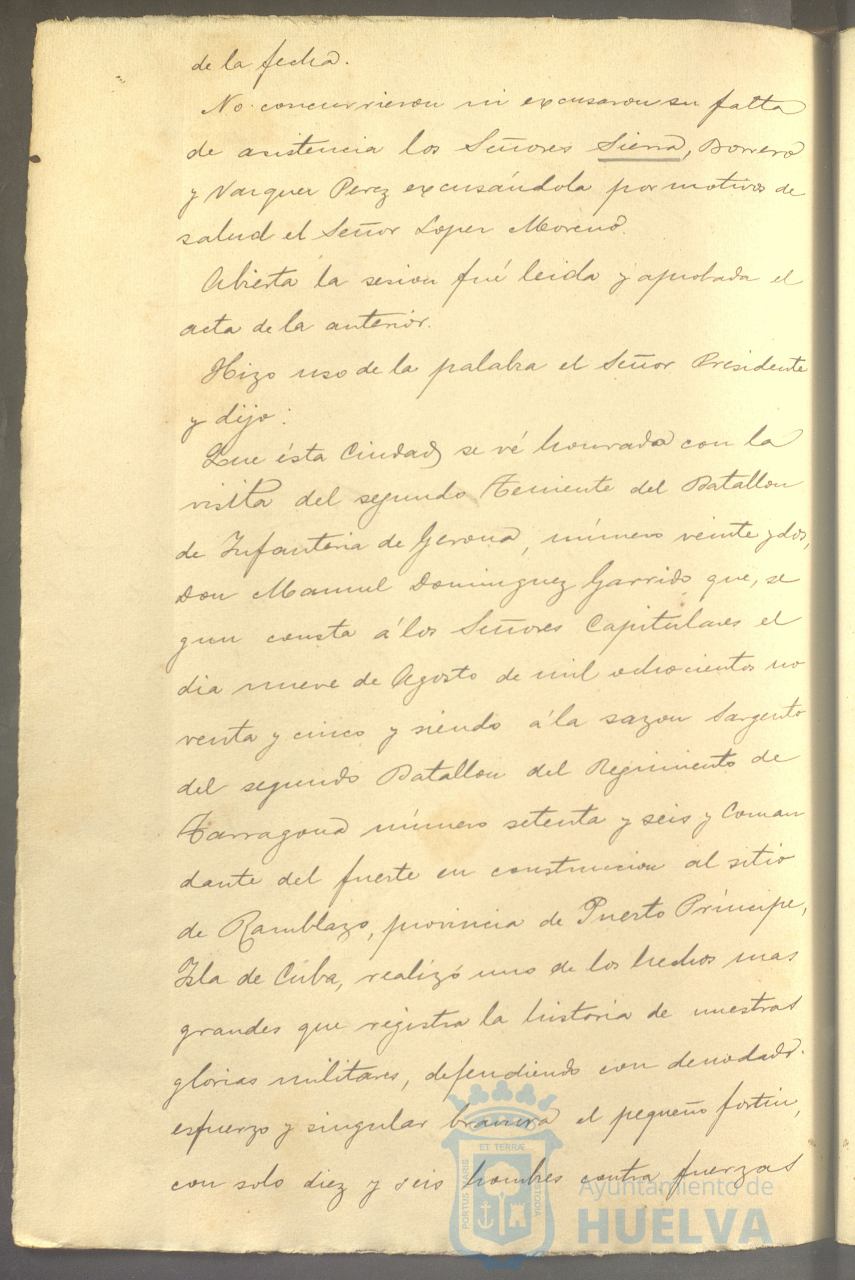 de la fecha.
No concurrieron ni excusaron su falta
de asistencia los Señores Sierra, Borrero
y Vazquez Perez excusándola por motivos de
salud el Señor Lopez Moreno.
Abierta la sesion fué leida y aprobada el
acta de la anterior.
Hizo uso de la palabra el Señor Presidente
y dijo:
Que ésta Ciudad se vé honrada con la
visita del segundo Teniente del Batallon
de Infanteria de Gerona, número veinte y dos,
Don Manuel Dominguez Garrido que, se
gun consta á los Señores Capitulares el
dia nueve de Agosto de mil ochocientos no
venta y cinco y siendo á la sazon Sargento
del segundo Batallon del Regimiento de
Tarragona número setenta y seis y Coman
dante del fuerte en construccion al sitio
de Ramblazo, provincia de Puerto Príncipe,
Isla de Cuba, realizó uno de los hechos mas
grandes que registra la historia de nuestras
glorias militares, defendiendo con denodado
esfuerzo y singular bravura el pequeño fortin,
con solo diez y seis hombres contra fuerzas
PORTUS MARIS ET TERRÆ CUSTODIA
Ayuntamiento de
HUELVA